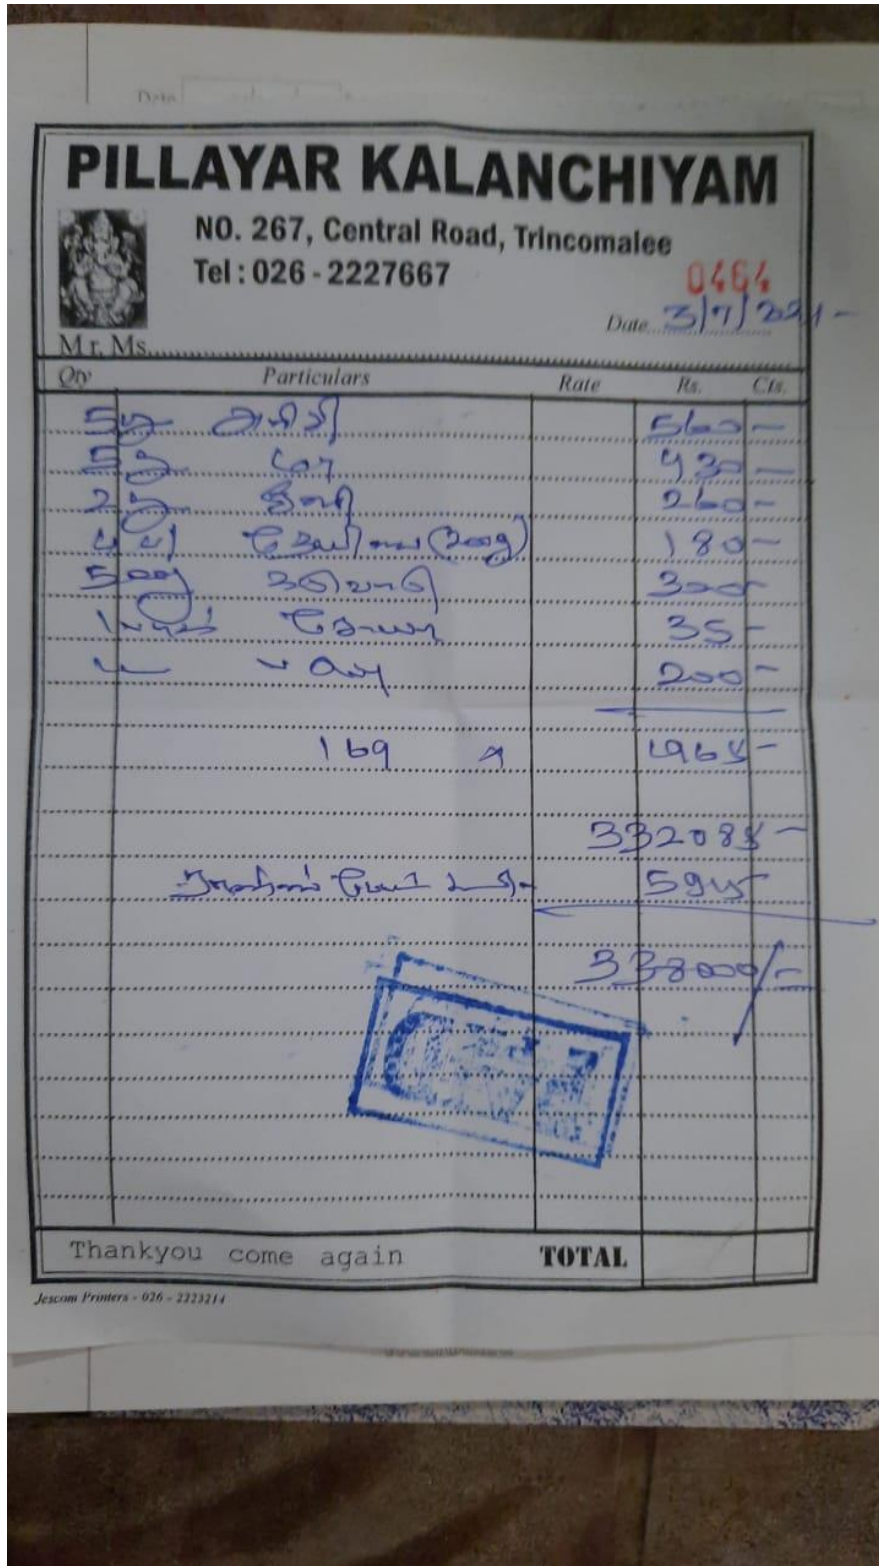 Date
PILLAYAR KALANCHIYAM
NO. 267, Central Road, Trincomalee
Tel : 026 - 2227667
0464
Date 3/7/2021 -
Mr. Ms.
Qty Particulars Rate Rs. Cts.
5 அரிசி 560 -
5 மா 430 -
2 சீனி 260 -
தேயிலை (200g) 180 -
500g 300
சோயா 35 -
200 -
169 1965 -
332085 -
5915
338000/-
Thankyou come again TOTAL
Jescom Printers - 026 - 2223214